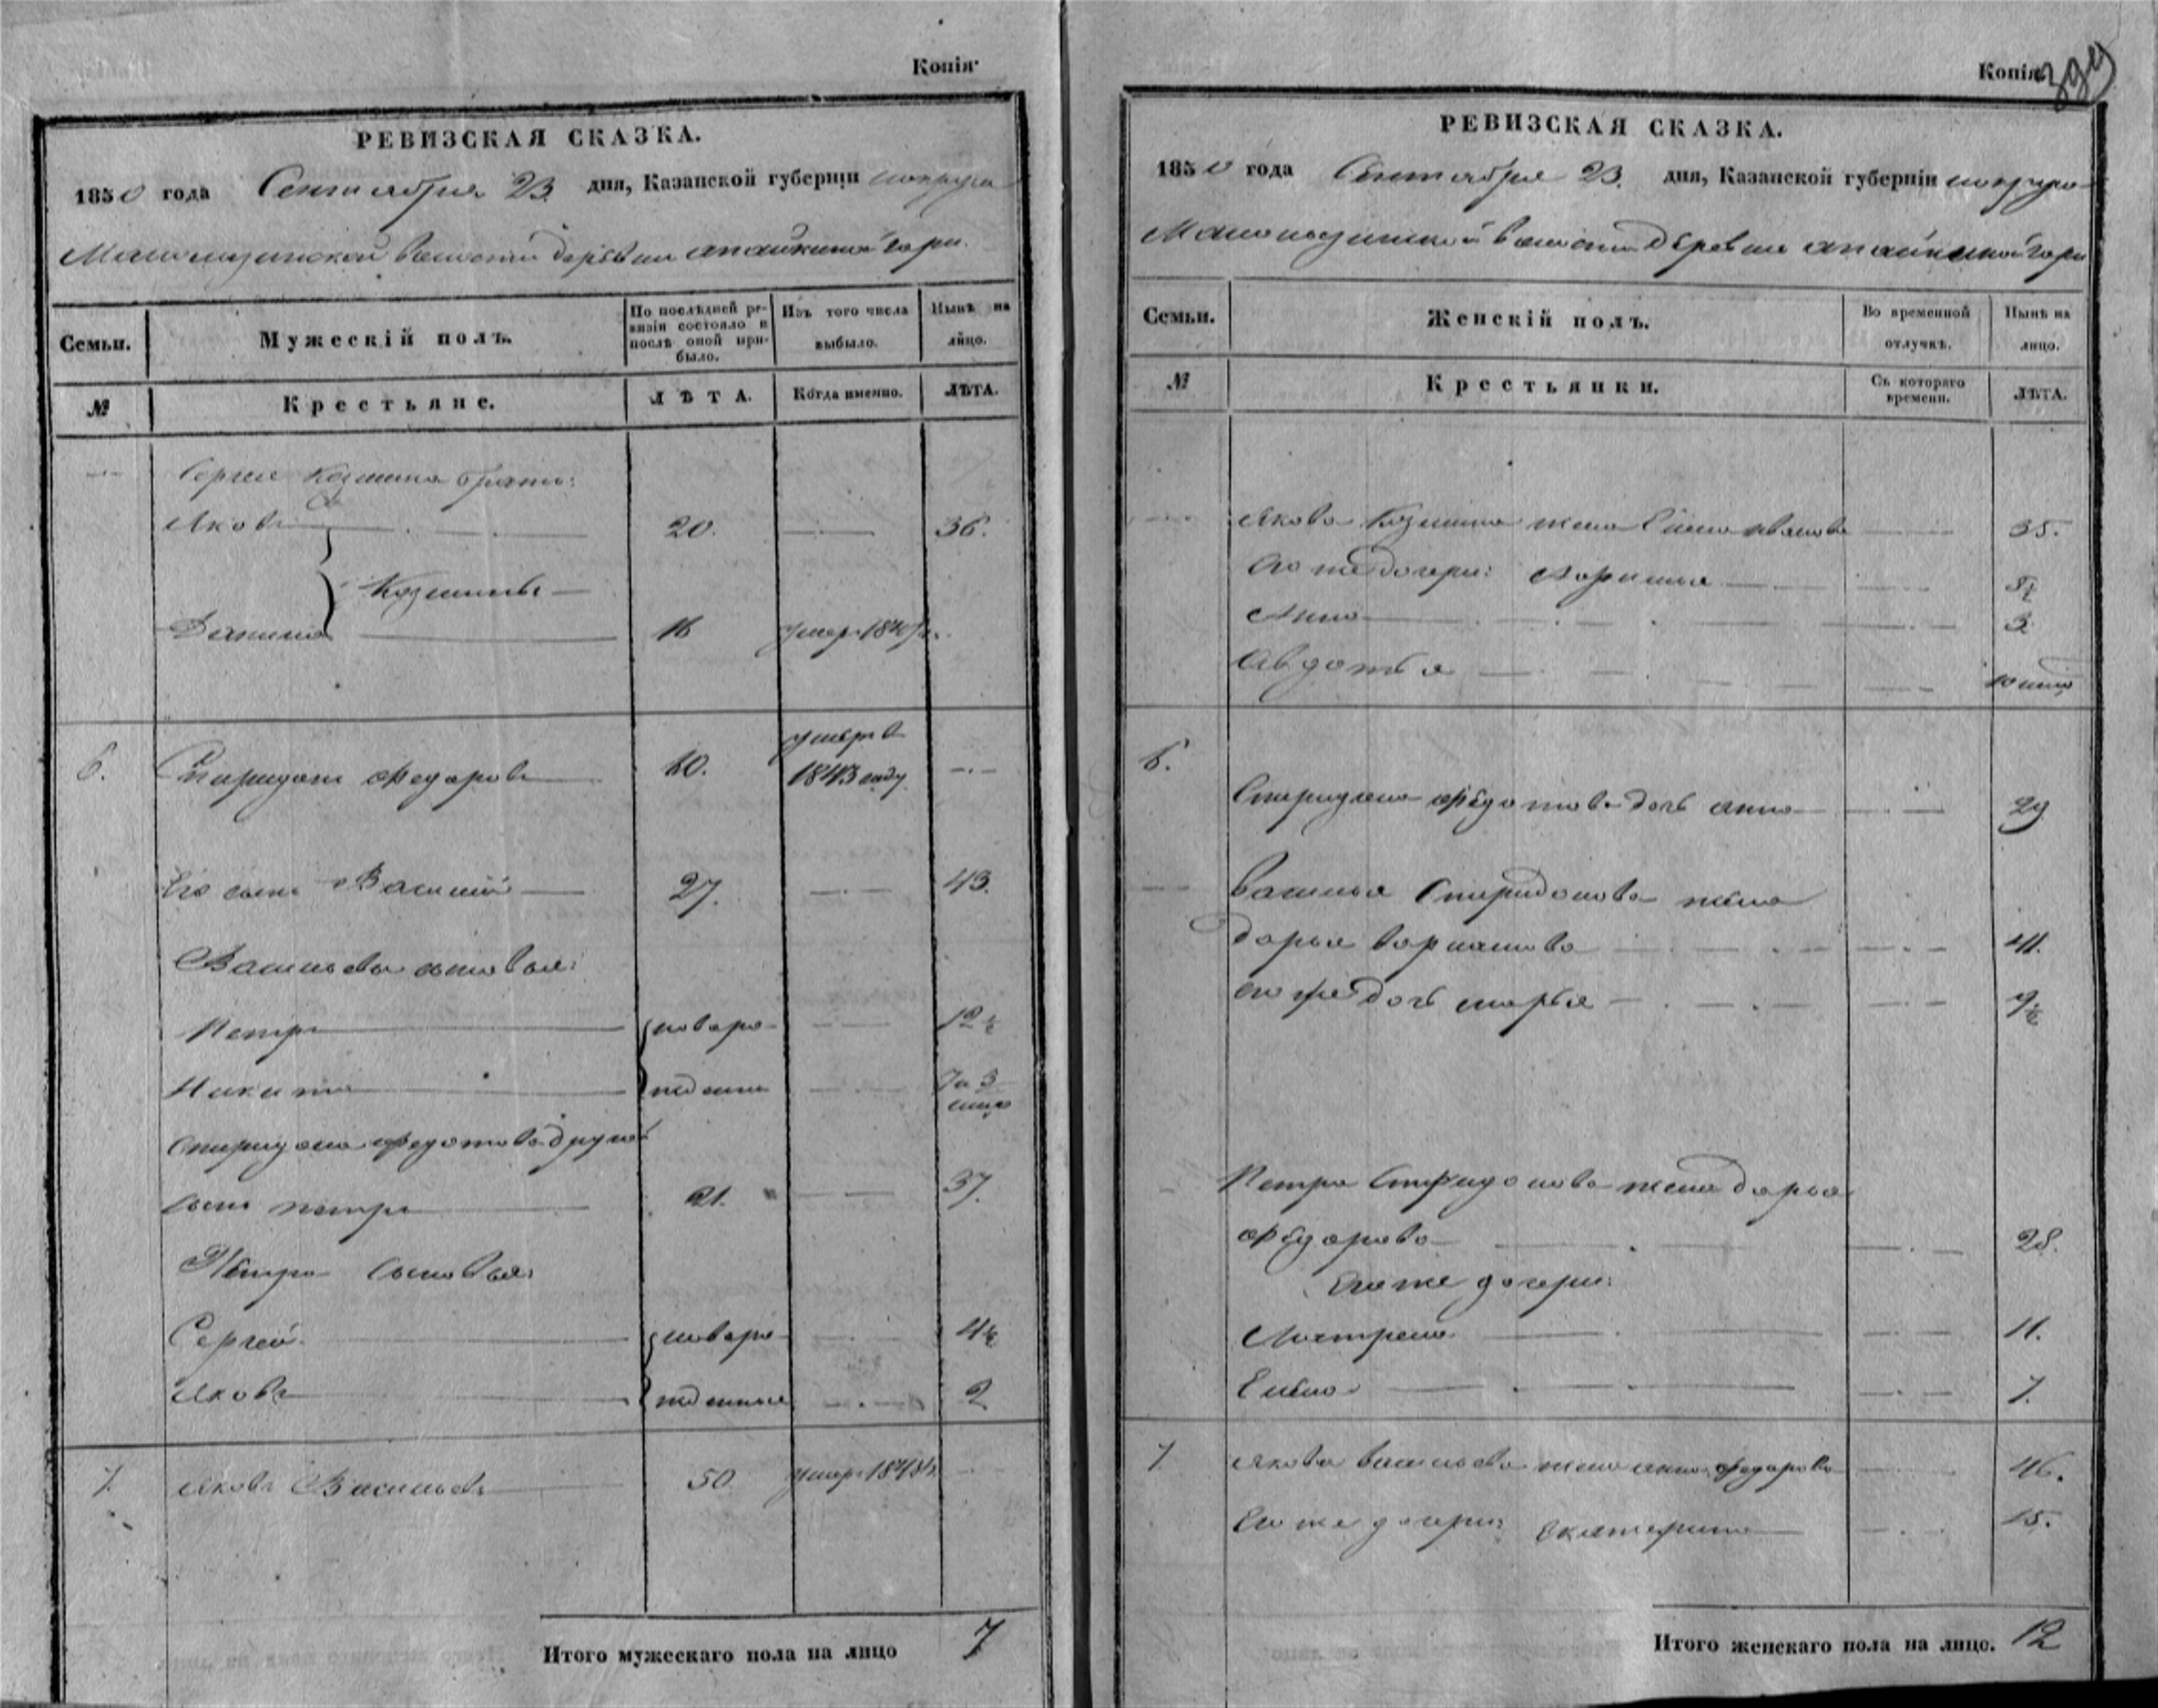 Копія
РЕВИЗСКАЯ СКАЗКА.
1850 года Сентября 23 дня, Казанской губерніи
волости деревни гари
Семьи.
Мужескій полъ.
По послѣдней ре-
визіи состояло и
послѣ оной при-
было.
Изъ того числа
выбыло.
Нынѣ на
лицо.
№
Крестьяне.
ЛѢТА.
Когда именно.
ЛѢТА.
Сергея Козмина братья:
Яковъ 20. 36.
Козмины
Данила 16 умеръ
6. Спиридонъ Федоровъ 60. умеръ в
1843 году
Его сынъ Василий 27. 43.
Васильевы сыновья:
Петръ новоро- 12½
Никита жденны 7 и 3
Спиридона Федотова другой
сынъ петръ 21. 37.
Петра сыновья:
Сергей новоро- 4½
Яковъ жденные 2
7. Яковъ Васильевъ 50 умеръ
Итого мужескаго пола на лицо 7
Копія
399
РЕВИЗСКАЯ СКАЗКА.
1850 года Сентября 23. дня, Казанской губерніи
волости деревни гари
Семьи.
Женскій полъ.
Во временной
отлучкѣ.
Нынѣ на
лицо.
№
Крестьянки.
Съ котораго
времени.
ЛѢТА.
Якова Козмина жена Елена иванова 35.
его же дочери:
Анна 3
Авдотья
6.
Спиридона Федотова дочь анна 29
Василья Спиридонова жена
дарья 41.
его же дочь марья 9½
Петра Спиридонова жена дарья
Федорова 28.
Его же дочери:
11.
Елена 7.
7 Якова васильева жена анна федорова 46.
Его же дочери: Екатерина 15.
Итого женскаго пола на лицо. 12